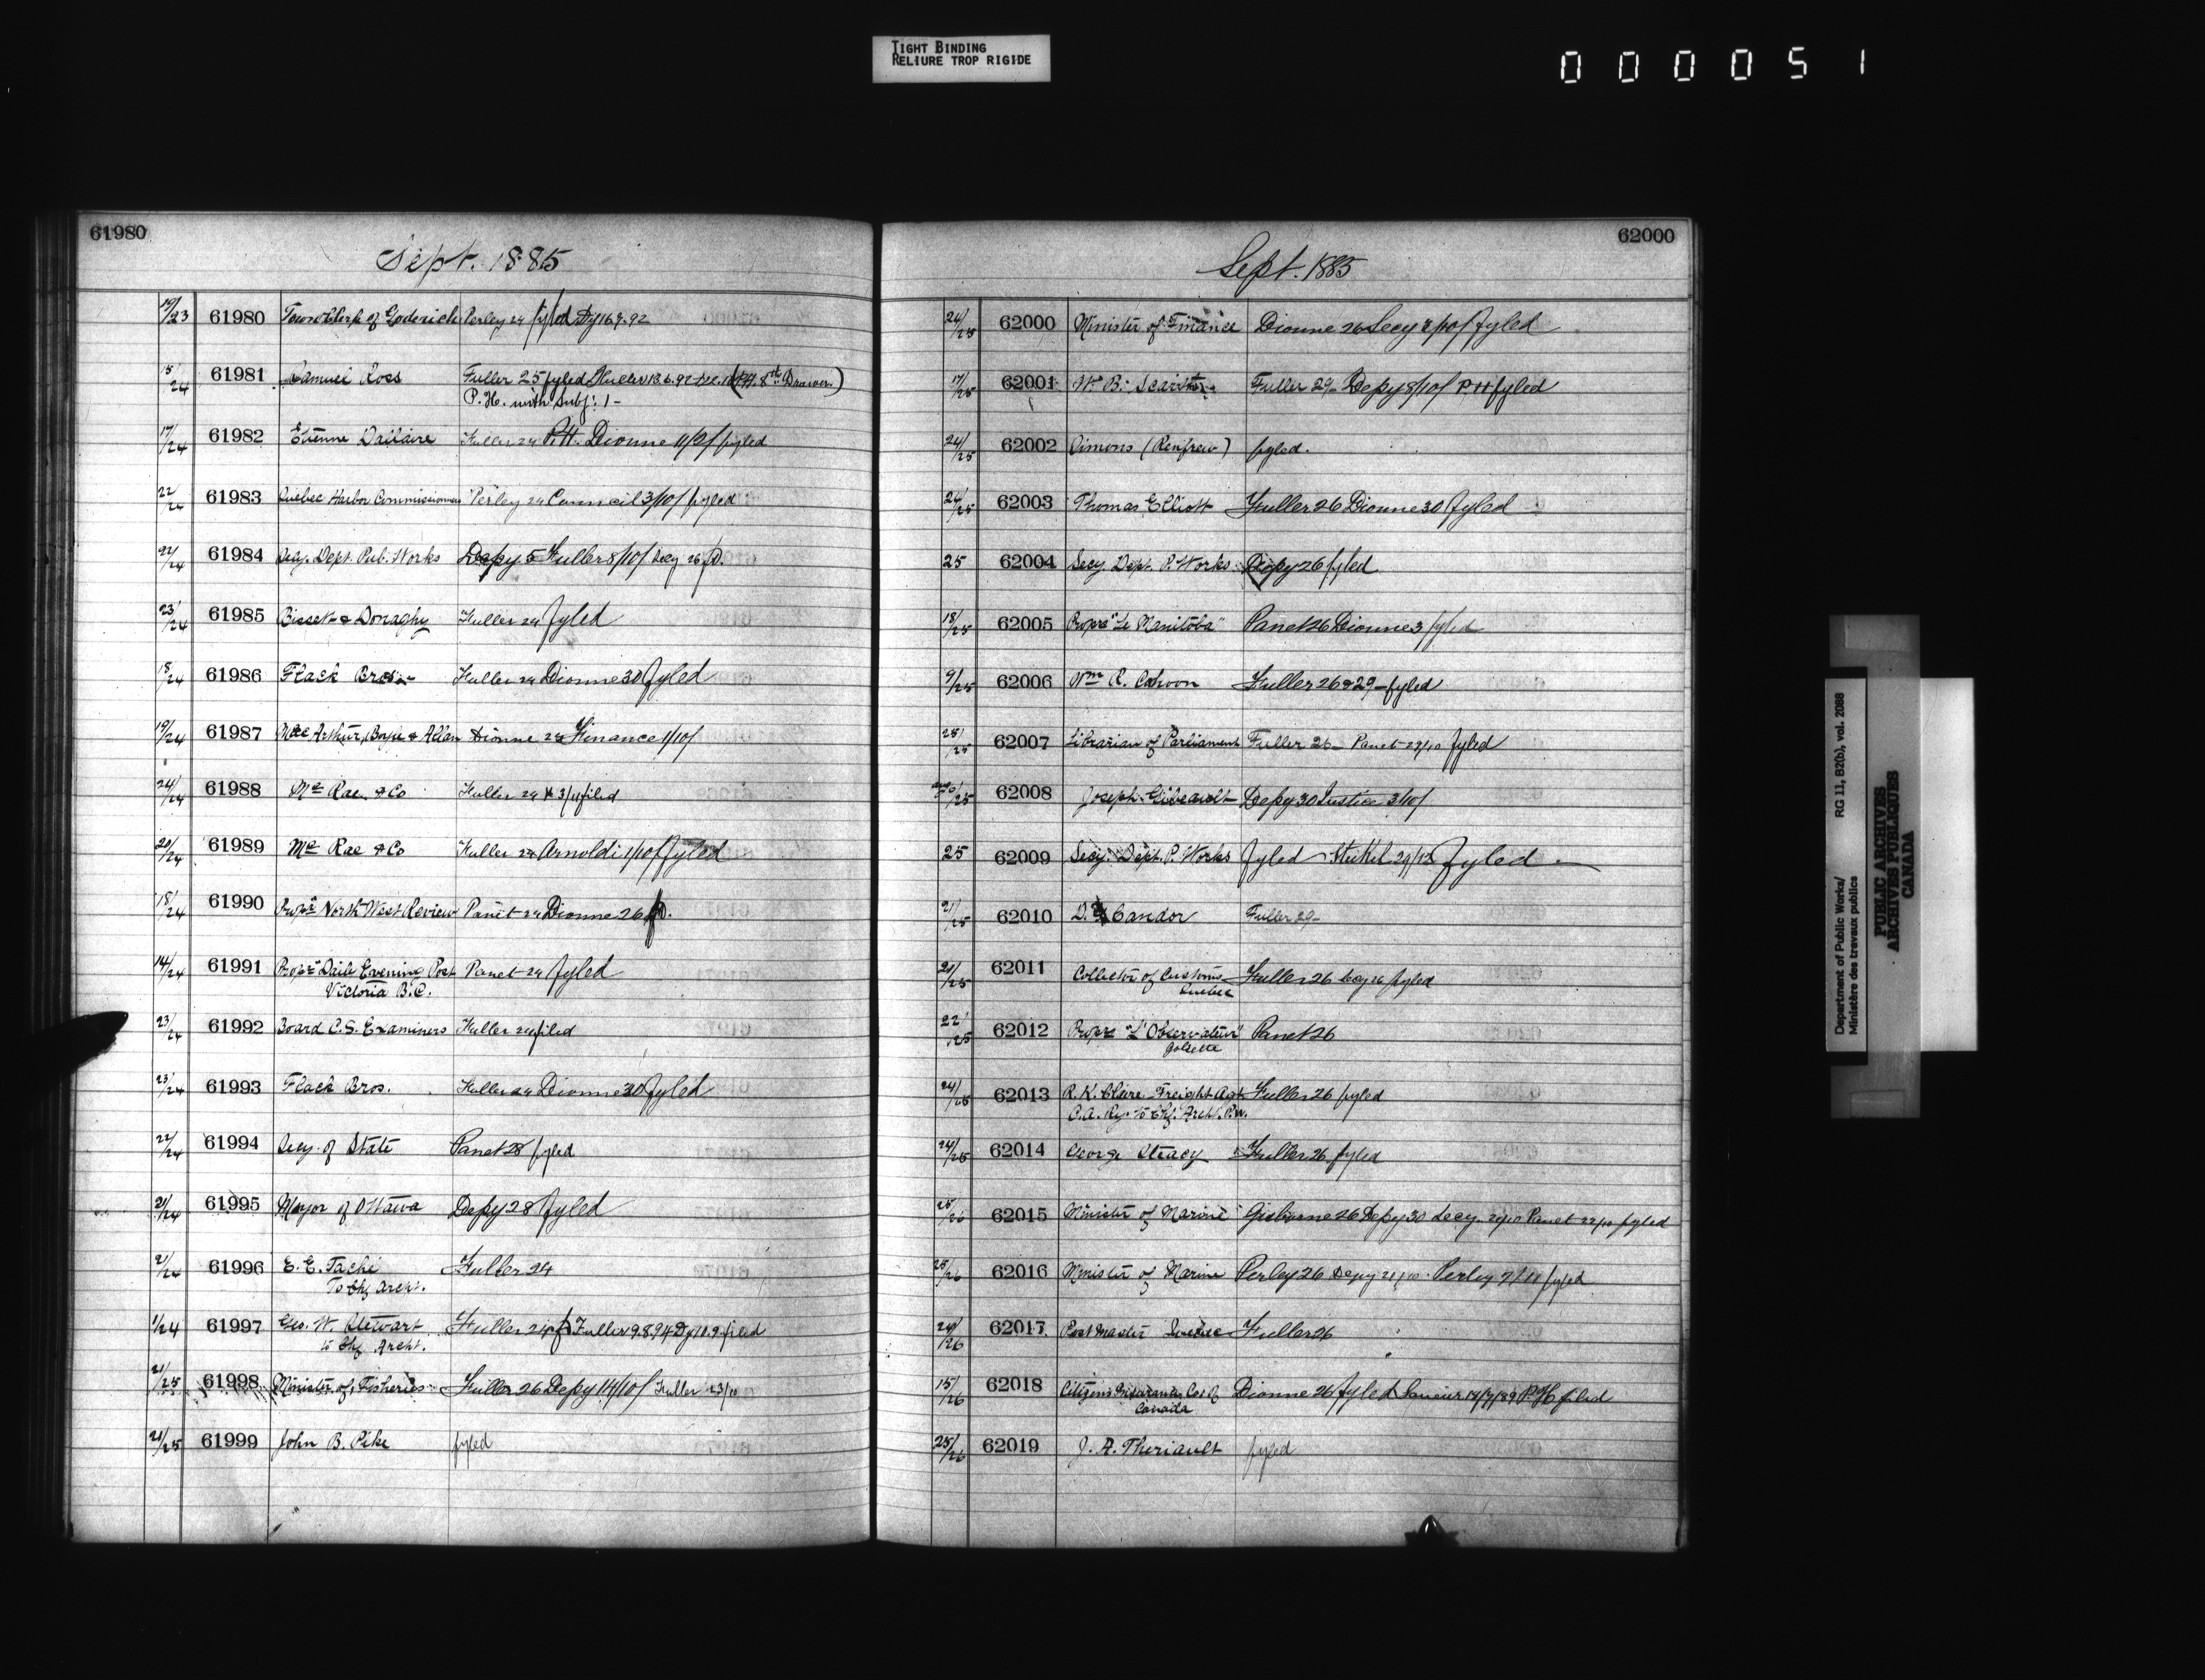 TIGHT BINDING
RELIURE TROP RIGIDE
000051
61980
Sept. 1885
19/23 61980 Town Clerk of Goderich Perley 24 fyled Dy 16.9.92
15/24 61981 Samuel Ross Fuller 25 fyled Fuller 13.6.92 (P.H. 8th Drawer)
P.H. with Subj: 1-
17/24 61982 Etienne Dallaire Fuller 24 P.H. Dionne 11/2/ fyled
22/24 61983 Quebec Harbor Commissioners Perley 24 Council 3/10/ fyled
22/24 61984 Secy. Dept. Pub. Works Depy 5 Fuller 8/10/ Secy 26 fd.
23/24 61985 Bisset & Donaghy Fuller 24 fyled
18/24 61986 Flack Bros. Fuller 24 Dionne 30 fyled
19/24 61987 MacArthur, Boyle & Allan Dionne 24 Finance 1/10/
24/24 61988 Mc Rae & Co Fuller 24 filed
20/24 61989 Mc Rae & Co Fuller 24 Arnoldi 1/10/ fyled
18/24 61990 Propr North West Review Panet 24 Dionne 26 fd.
14/24 61991 Propr "Daily Evening Post Panet 24 fyled
Victoria B.C.
23/24 61992 Board C.S. Examiners Fuller 24 filed
23/24 61993 Flack Bros. Fuller 24 Dionne 30 fyled
22/24 61994 Secy. of State Panet 28 fyled
21/24 61995 Mayor of Ottawa Depy 28 fyled
21/24 61996 E. E. Taché Fuller 24
To Chf Archt.
1/24 61997 Geo. W. Stewart Fuller 24 fd Fuller 9.8.94 Dy 10.9 filed
to Chf Archt.
21/25 61998 Minister of Fisheries Fuller 26 Depy 14/10/ Fuller 23/10
21/25 61999 John B. Pike fyled
62000
Sept. 1885
24/25 62000 Minister of Finance Dionne 26 Secy 2/10/ fyled
17/25 62001 W. B. Scarth Fuller 29 Depy 8/10/ P.H fyled
24/25 62002 Simons (Renfrew) fyled.
24/25 62003 Thomas Elliott Fuller 26 Dionne 30 fyled
25 62004 Secy. Dept. P. Works Depy 26 fyled
18/25 62005 Propr "Le Manitoba" Panet 26 Dionne 3 fyled
9/25 62006 Wm R. Cahoon Fuller 26 & 29 - fyled
25/25 62007 Librarian of Parliament Fuller 26 Panet 29/10 fyled
62008 Joseph Gibeault Depy 30 Justice 3/10/
25 62009 Secy. Dept. P. Works fyled - Steckel 29/12 fyled
21/25 62010 D. Candor Fuller 29-
21/25 62011 Collector of Customs Fuller 26 Secy 26 fyled
Quebec
22/25 62012 Propr "L'Observateur" Panet 26
Joliette
24/25 62013 R. K. Clare Freight Agt Fuller 26 fyled
C.A. Ry. to Chf. Archt. P.W.
24/25 62014 George Steacy Fuller 26 fyled
25/26 62015 Minister of Marine Gisborne 26 Depy 30 Secy. 20/10 Panet 22/10 fyled
25/26 62016 Minister of Marine Perley 26 Depy 21/10 Perley 2/11 fyled
24/26 62017 Post Master Quebec Fuller 26
15/26 62018 Citizens Insurance Co. of Dionne 26 fyled 12/7/89 P.H. filed
Canada
25/26 62019 J. A. Theriault fyled
Department of Public Works/ RG 11, B2(b), vol. 2088
Ministère des travaux publics
PUBLIC ARCHIVES
ARCHIVES PUBLIQUES
CANADA